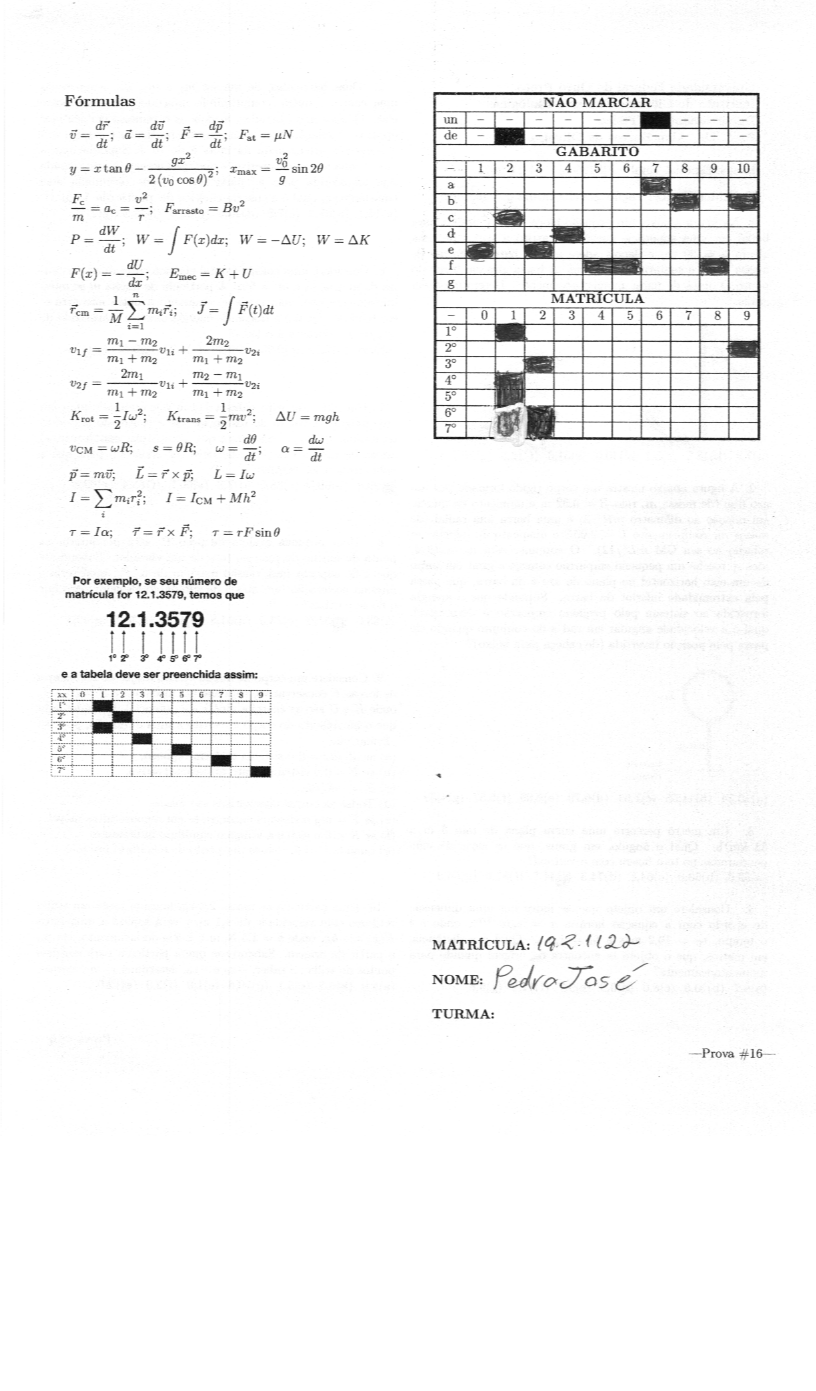 Fórmulas
v⃗ = dr⃗/dt; a⃗ = dv⃗/dt; F⃗ = dp⃗/dt; F_at = μN
y = x tan θ − gx²/2 (v₀ cos θ)²; x_max = v₀²/g sin 2θ
F_c/m = a_c = v²/r; F_arrasto = Bv²
P = dW/dt; W = ∫ F(x)dx; W = −ΔU; W = ΔK
F(x) = −dU/dx; E_mec = K + U
r⃗_cm = 1/M ∑_{i=1}^{n} m_i r⃗_i; J⃗ = ∫ F⃗(t)dt
v_1f = (m₁ − m₂)/(m₁ + m₂) v_1i + 2m₂/(m₁ + m₂) v_2i
v_2f = 2m₁/(m₁ + m₂) v_1i + (m₂ − m₁)/(m₁ + m₂) v_2i
K_rot = 1/2 Iω²; K_trans = 1/2 mv²; ΔU = mgh
v_CM = ωR; s = θR; ω = dθ/dt; α = dω/dt
p⃗ = mv⃗; L⃗ = r⃗ × p⃗; L = Iω
I = ∑_i m_i r_i²; I = I_CM + Mh²
τ = Iα; τ⃗ = r⃗ × F⃗; τ = rF sin θ
Por exemplo, se seu número de
matrícula for 12.1.3579, temos que
12.1.3579
1º 2º 3º 4º 5º 6º 7º
e a tabela deve ser preenchida assim:
xx 0 1 2 3 4 5 6 7 8 9
1º
2º
3º
4º
5º
6º
7º
NÃO MARCAR
un – – – – – – – – –
de – – – – – – – – –
GABARITO
– 1 2 3 4 5 6 7 8 9 10
a
b
c
d
e
f
g
MATRÍCULA
– 0 1 2 3 4 5 6 7 8 9
1º
2º
3º
4º
5º
6º
7º
MATRÍCULA: 19.2.1122
NOME: Pedro José
TURMA:
—Prova #16—